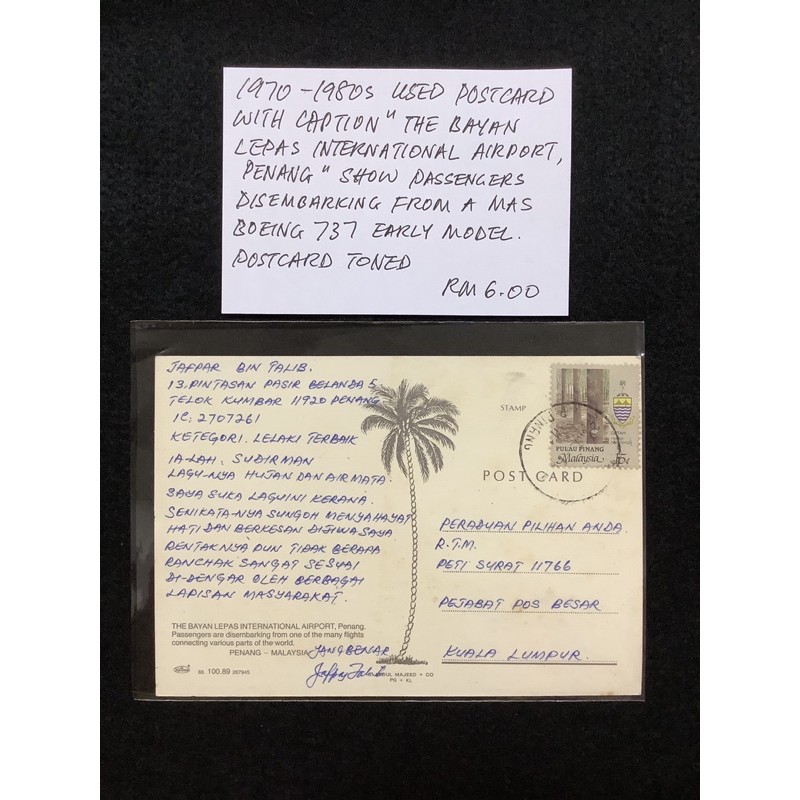 1970-1980s USED POSTCARD
WITH CAPTION "THE BAYAN
LEPAS INTERNATIONAL AIRPORT,
PENANG" SHOW PASSENGERS
DISEMBARKING FROM A MAS
BOEING 737 EARLY MODEL.
POSTCARD TONED
RM 6.00
JAFPAR BIN TALIB.
13. PINTASAN PASIR BELANDA 5
TELOK KUMBAR 11920 PENANG
IC: 2707261
KETEGORI. LELAKI TERBAIK
IA-LAH. SUDIRMAN
LAGU-NYA HUJAN DAN AIRMATA.
SAYA SUKA LAGU INI KERANA.
SENIKATA-NYA SUNGOH MENYAHAYAT
HATI DAN BERKESAN DIJIWA SAYA
RENTAKNYA PUN TIDAK BERAPA
RANCHAK SANGAT SESUAI
DI-DENGAR OLEH BERBAGAI
LAPISAN MASYARAKAT.
THE BAYAN LEPAS INTERNATIONAL AIRPORT, Penang.
Passengers are disembarking from one of the many flights
connecting various parts of the world.
PENANG – MALAYSIA
YANG BENAR
100.89 297945
MAJEED + CO
PG + KL
STAMP
PULAU PINANG
Malaysia 15¢
POST CARD
PERADUAN PILIHAN ANDA.
R.T.M.
PETI SURAT 11766
PEJABAT POS BESAR
KUALA LUMPUR.